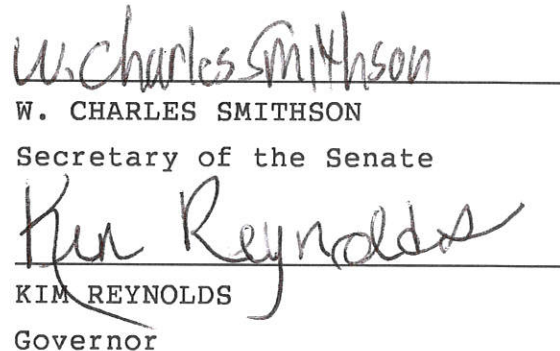 W. Charles Smithson
W. CHARLES SMITHSON
Secretary of the Senate
Kim Reynolds
KIM REYNOLDS
Governor